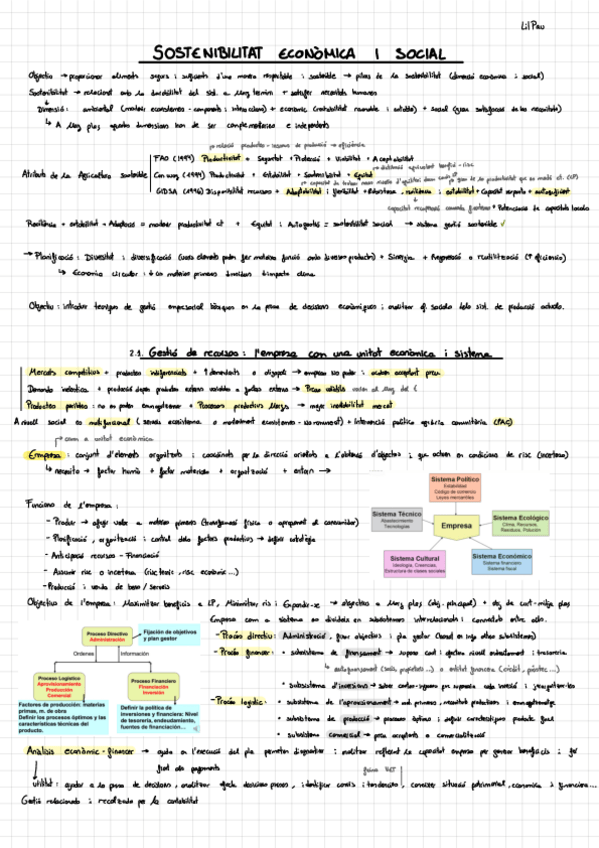 LilPau
SOSTENIBILITAT ECONÒMICA I SOCIAL
Objectiu → proporcionar aliments segurs i suficients d'una manera respectable i sostenible → pilars de la sostenibilitat (dimensió econòmica i social)
Sostenibilitat → relacionat amb la durabilitat del sist. a llarg termini + satisfer necessitats humanes
↳ Dimensió: ambiental (mantenir ecosistemes - components i interaccions) + econòmic (rentabilitat raonable i estable) + social (grau satisfacció de les necessitats)
↳ A llarg plaç aquestes dimensions han de ser complementàries e independents
→ relació productes - recursos de producció → eficiència
FAO (1994) Productivitat + Seguretat + Protecció + Viabilitat + Acceptabilitat
→ distribució equivalent benefici - risc
Atributs de la Agricultura sostenible Conway (1994) Productivitat + Estabilitat + Sostenibilitat + Equitat
GIDSA (1996) Disponibilitat recursos + Adaptabilitat i flexibilitat + Robustesa, resiliència i estabilitat + Capacitat resposta + autosuficient
+ Potenciació de capacitats locals
Resiliència + estabilitat → Adaptació o mantenir productivitat ct + Equitat i Autogestió = sostenibilitat social → sistema gestió sostenible ✓
→ Planificació: Diversitat i diversificació (varis elements poden fer mateixa funció amb diversos productes) + Sinergia + Regeneració o reutilització (↑ eficiència)
↳ Economia circular: ↓ ús matèries primeres
Objectiu: introduir tècniques de gestió empresarial bàsiques en la presa de decisions econòmiques i analitzar ef. socials dels sist. de producció actuals.
2.1. Gestió de recursos: l'empresa com una unitat econòmica i sistema
Mercats competitius + productes indiferenciats + ↑ demandants o oligopoli → empresa no poder: accepten preu
Demanda inelàstica + producció depen productes externs variables a factors externs → Preus volàtils
Productes peribles: no es poden emmagatzemar + Processos productius llargs → major inestabilitat mercat
A nivell social es multifuncional (serveis ecosistema o manteniment ecosistemes - no remunerat) + Intervenció política agrària comunitària (PAC)
→ com a unitat econòmica
Empresa: conjunt d'elements organitzats i coordinats per la direcció orientats a l'obtenció d'objectius i que actuen en condicions de risc (incertesa)
↳ necessita → factor humà + factor materials + organització + entorn →
Sistema Político
Estabilidad
Código de comercio
Leyes mercantiles
Sistema Técnico
Abastecimiento
Tecnologías
Empresa
Sistema Ecológico
Clima, Recursos,
Residuos, Polución
Sistema Cultural
Ideología, Creencias,
Estructura de clases sociales
Sistema Económico
Sistema financiero
Sistema fiscal
Funcions de l'empresa:
- Produir → afegir valor a matèries primeres (transformació física o apropament al consumidor)
- Planificació, organització i control dels factors productius → definir estratègia
- Anticipació recursos - Financiació
- Assumir risc o incertesa (risc tècnic, risc econòmic...)
- Producció i venda de bens / serveis
Objectius de l'empresa: Maximitzar beneficis a LP, Minimitzar ris i Expandir-se → objectius a llarg plaç (obj. principal) + obj de curt-mitjà plaç
Proceso Directivo
Administración
Fijación de objetivos
y plan gestor
Ordenes
Información
Proceso Logístico
Aprovisionamiento
Producción
Comercial
Proceso Financiero
Financiación
Inversión
Factores de producción: materias
primas, m. de obra
Definir los procesos óptimos y las
características técnicas del
producto.
Definir la política de
inversiones y financiera: Nivel
de tesorería, endeudamiento,
fuentes de financiación…
Empresa com a sistema es divideix en subsistemes interrelacionats i connectats entre ells.
- Procés directiu: Administració, fixar objectius i pla gestor (basat en info altres subsistemes)
- Procés financer: • subsistema de finançament → suposa cost i efectua nivell endeutament i tresoreria.
↳ autofinançament (socis, propietaris...) o entitat financera (crèdit, préstec...)
• subsistema d'inversions →
- Procés logístic: • subsistema de l'aprovisionament → mat. primeres, necessitat productius i emmagatzematge
• subsistema de producció → processos òptims i definir característiques producte final
• subsistema comercial → posa acceptants a comercialització
Anàlisis econòmic-financer → ajuda en l'execució del pla permeten diagnosticar i analitzar reflexant la capacitat empresa per generar beneficis i fer
front als pagaments
utilitat: ajudar a la presa de decisions, analitzar efecte decisions preses, identificar canvis i tendències, conèixer situació patrimonial, econòmica i financera...
Gestió relacionada i recolzada per la contabilitat